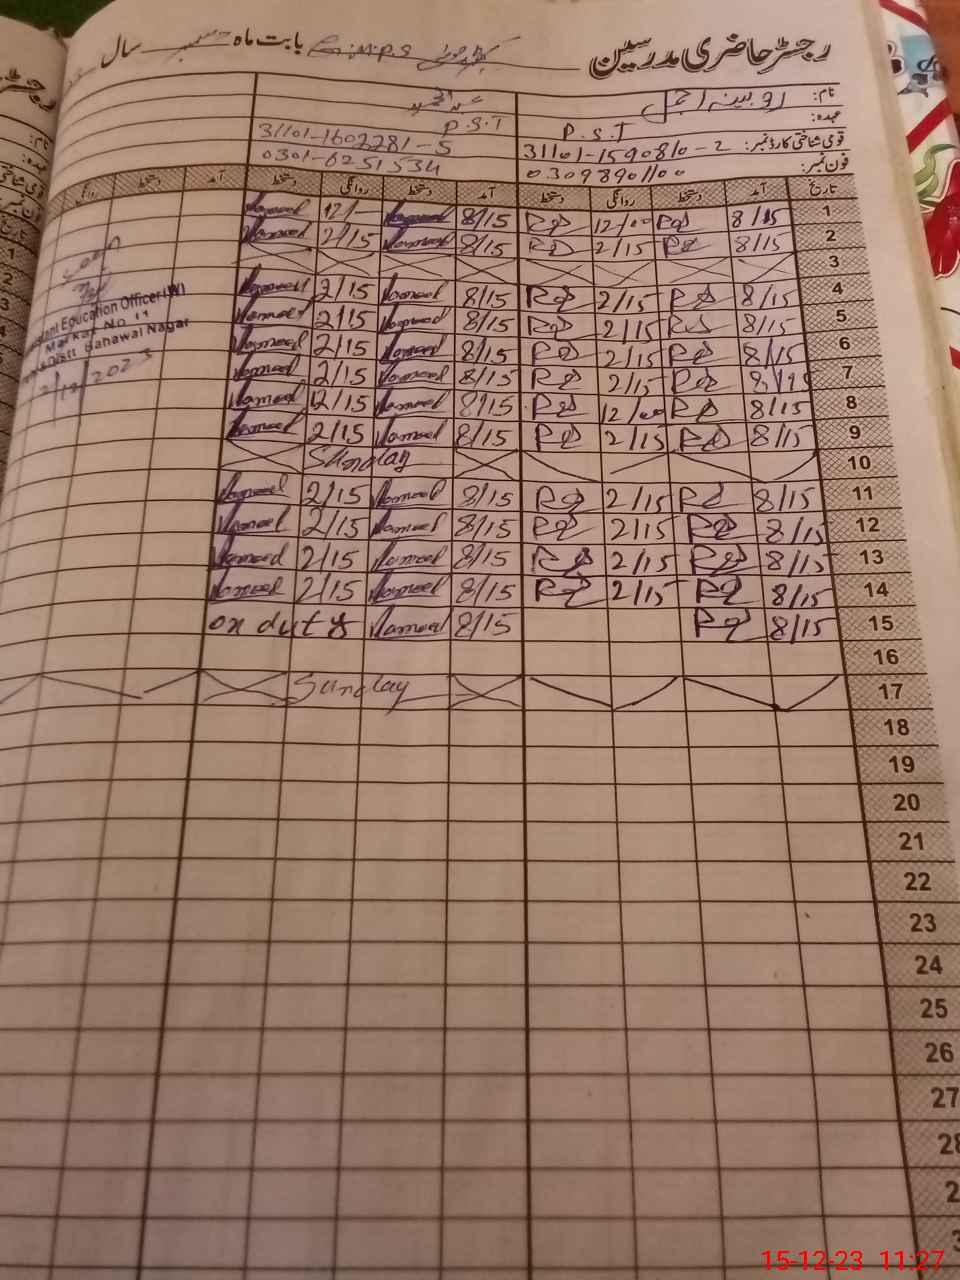 رجسٹر حاضری مدرسین G.M.P.S بابت ماہ دسمبر سال
نام: روبینہ اجمل
عہدہ: P.S.T P.S.T
قومی شناختی کارڈ نمبر: 31101-1590810-2 31101-1602281-5
فون نمبر: 03098901100 0301-6251534
تاریخ آمد دستخط روانگی دستخط آمد دستخط روانگی دستخط آمد دستخط روانگی
1 8/15 12/00 8/15 Hameed 12/- Hameed
2 8/15 2/15 8/15 Hameed 2/15 Hameed
3
4 8/15 2/15 8/15 Hameed 2/15 Hameed
5 8/15 2/15 8/15 Hameed 2/15 Hameed
6 8/15 2/15 8/15 Hameed 2/15 Hameed
7 8/15 2/15 8/15 Hameed 2/15 Hameed
8 8/15 12/00 8/15 Hameed 12/15 Hameed
9 8/15 2/15 8/15 Hameed 2/15 Hameed
10 Sunday
11 8/15 2/15 8/15 Hameed 2/15 Hameed
12 8/15 2/15 8/15 Hameed 2/15 Hameed
13 8/15 2/15 8/15 Hameed 2/15 Hameed
14 8/15 2/15 8/15 Hameed 2/15 Hameed
15 8/15 8/15 Hameed on duty
16
17 Sunday
18
19
20
21
22
23
24
25
26
27
28
Education Officer (W)
Markaz No 11
Distt. Bahawal Nagar
2023
15-12-23 11:27